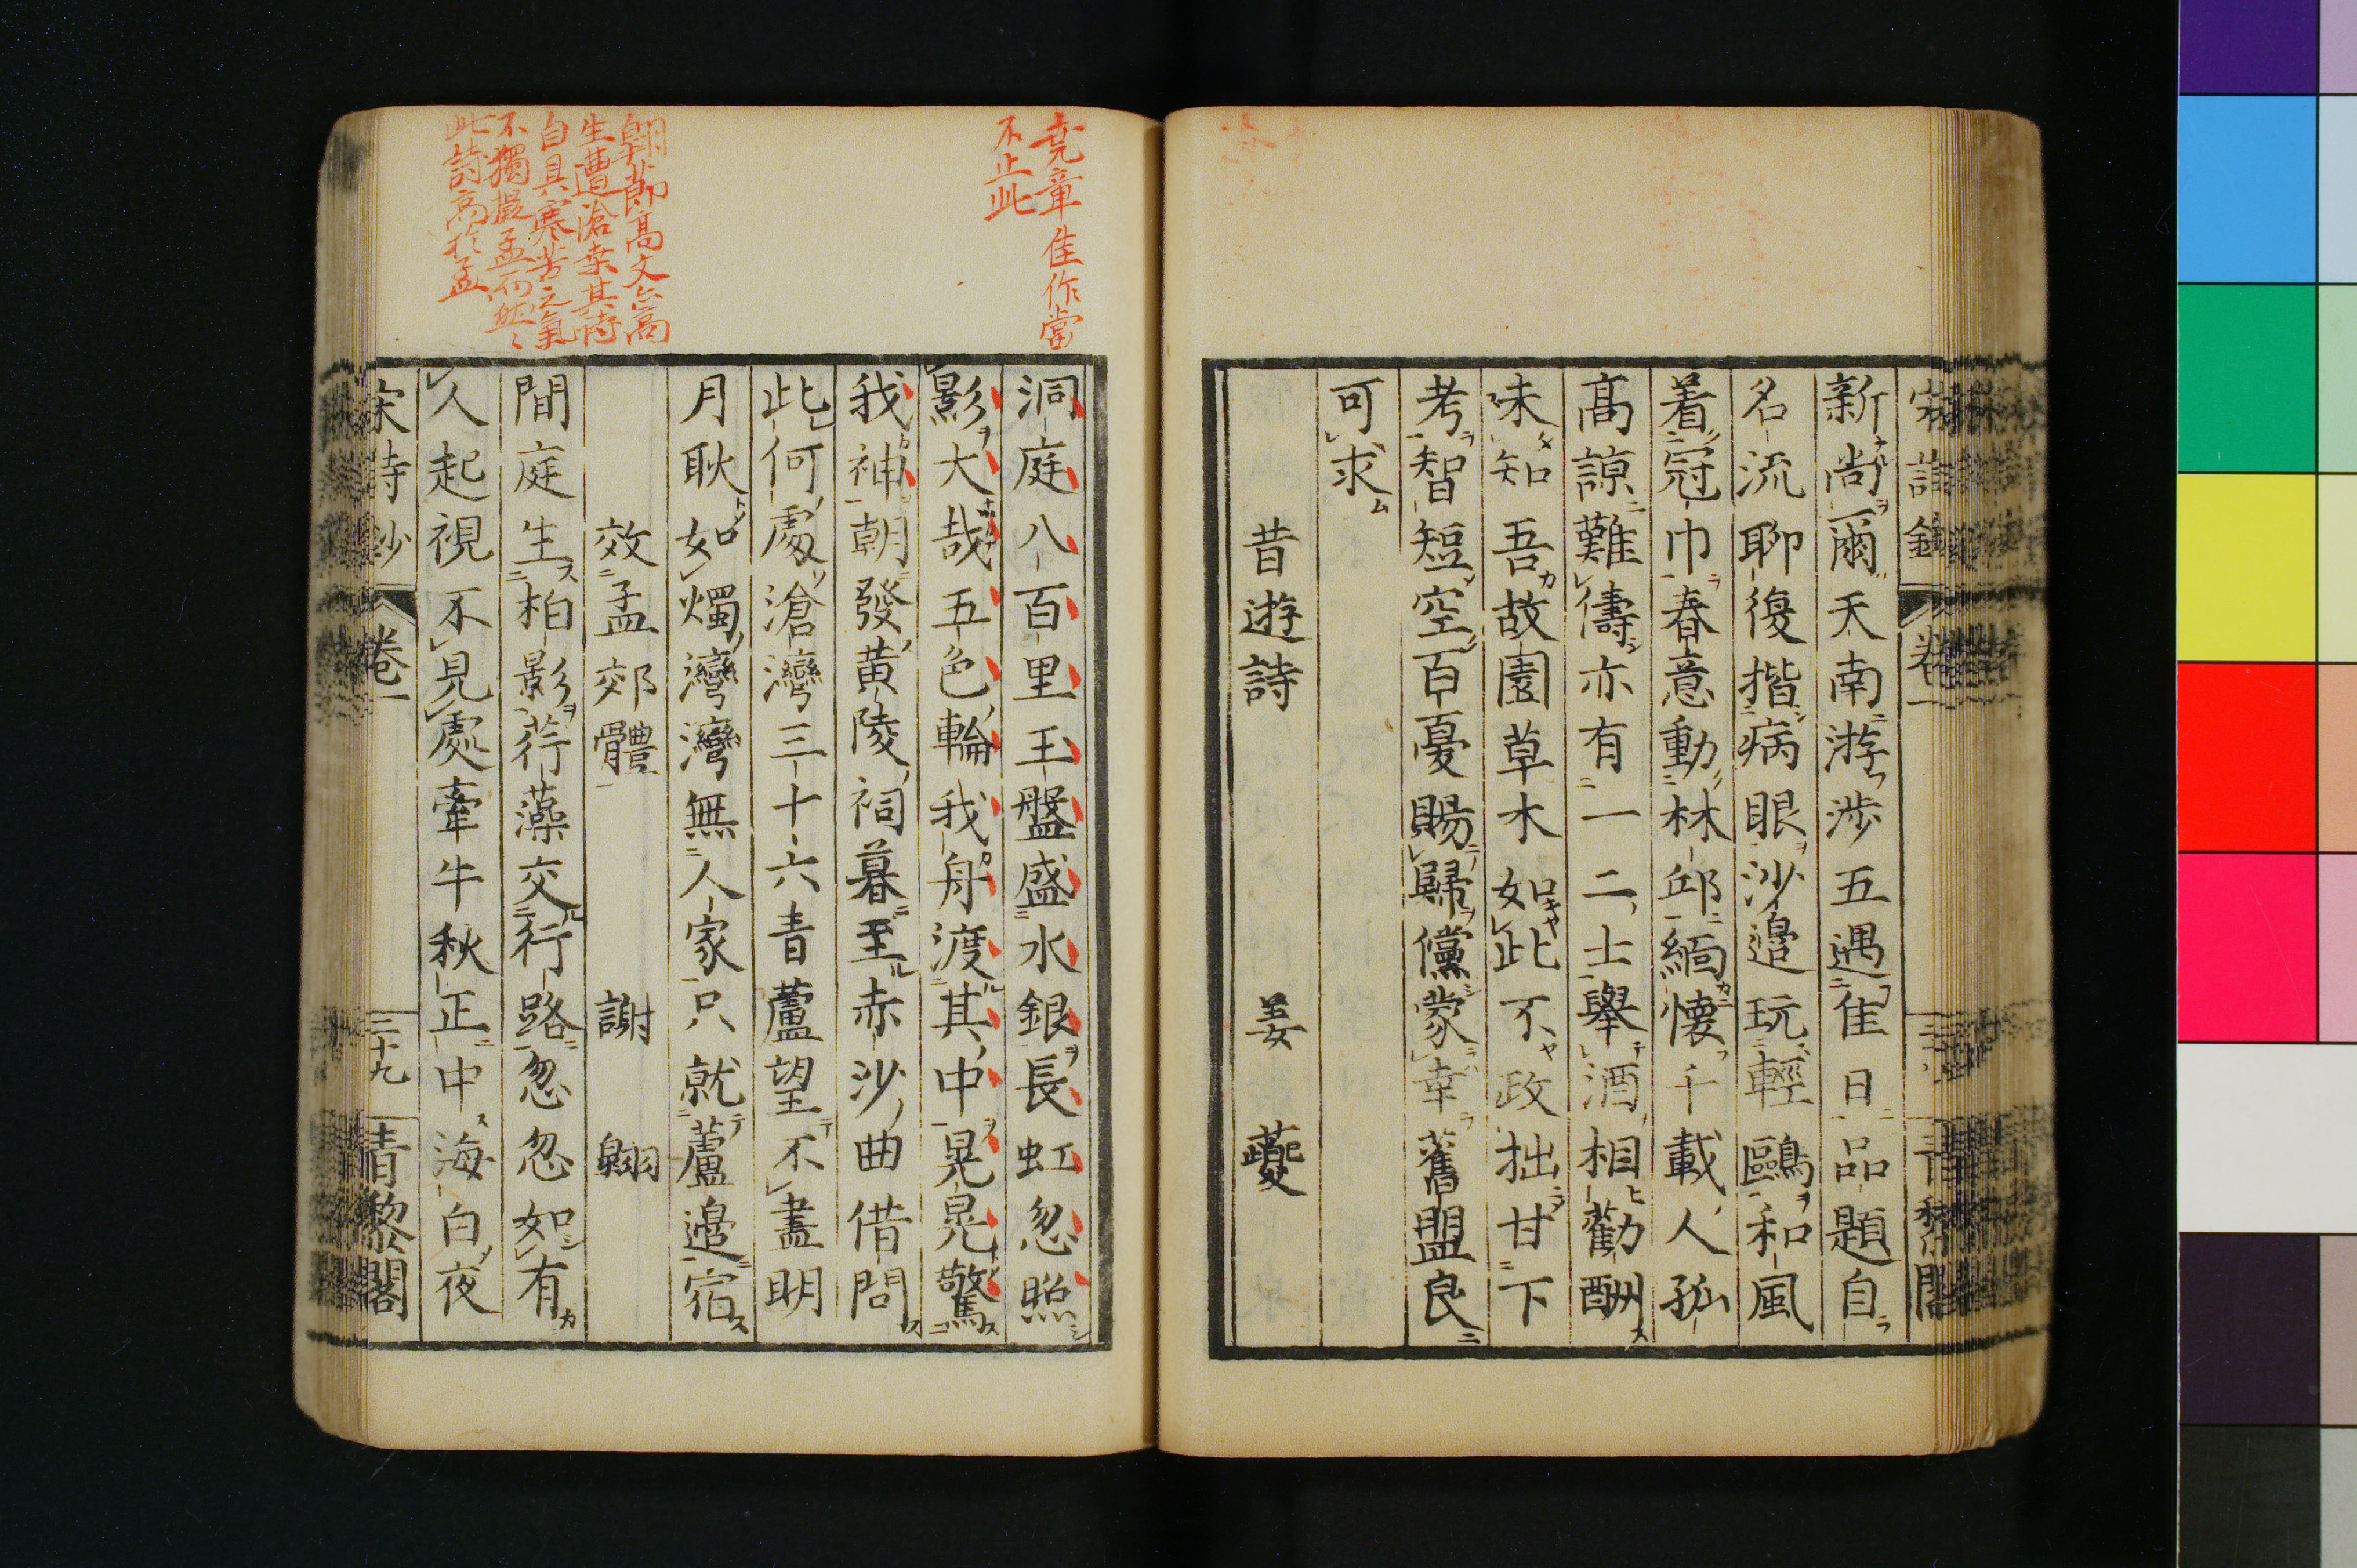 新尚爾天南游渉五遇佳日品題自
名流聊復揩病眼沙邉玩輕鷗和風
着冠巾春意動林邱緬懐千載人孤
髙諒難儔亦有一二士舉酒相勸酬
味知吾故園草木如此不政拙甘下
考智短空百憂賜歸儻蒙幸舊盟良
可求
昔遊詩 姜夔
堯章佳作當
不止此
洞庭八百里玉盤盛水銀長虹忽照
影大哉五色輪我舟渡其中晃晃驚
我神朝發黄陵祠暮至赤沙曲借問
此何處滄灣三十六青蘆望不盡明
月耿如燭灣灣無人家只就蘆邉宿
效孟郊體 謝翺
翺節髙文亦高
生遭滄桑其詩
自具寒苦之氣
不獨擬孟而然
此詩高於孟
間庭生柏影荇藻交行路忽忽如有
人起視不見處牽牛秋正中海白夜
宋詩鈔 卷一 三十九 青黎閣